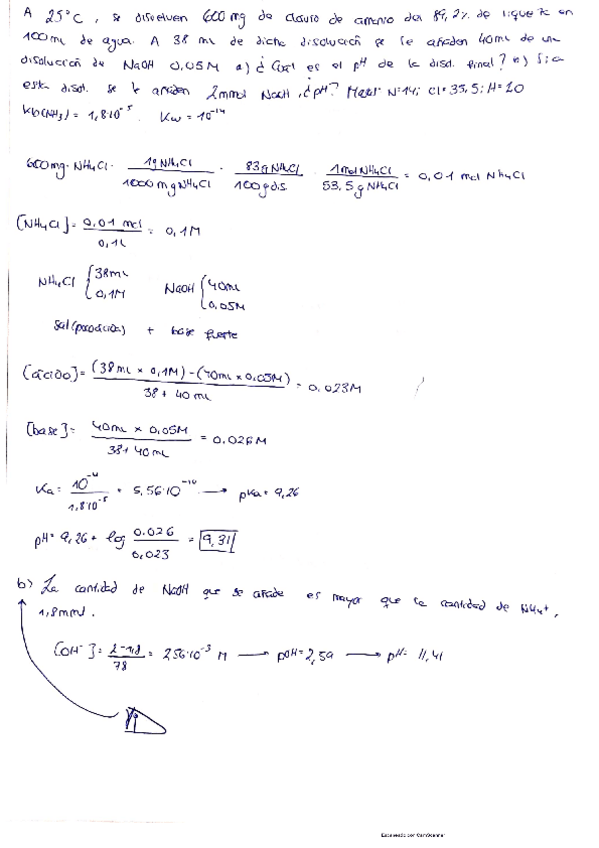 A 25°C, se disuelven 600 mg de cloruro de amonio del 89,2% de riqueza en
100 mL de agua. A 38 mL de dicha disolución se le añaden 40 mL de una
disolución de NaOH 0,05M a) ¿Cuál es el pH de la disol. final? b) Si a
esta disol. se le añaden 2mmol NaOH, ¿pH? N=14; Cl=35,5; H=10
Kb(NH₃)= 1,8·10⁻⁵. Kw=10⁻¹⁴
600 mg· NH₄Cl · 1g NH₄Cl / 1000 mg NH₄Cl · 83g NH₄Cl / 100g dis. · 1 mol NH₄Cl / 53,5 g NH₄Cl = 0,01 mol NH₄Cl
[NH₄Cl]= 0,01 mol / 0,1L = 0,1M
NH₄Cl { 38mL 0,1M NaOH { 40mL 0,05M
sal + base fuerte
[ácido]= (38 mL x 0,1M) - (40mL x 0,05M) / 38 + 40 mL = 0,023M
[base]= 40mL x 0,05M / 38+40mL = 0,026M
Ka= 10⁻¹⁴ / 1,8·10⁻⁵ = 5,56·10⁻¹⁰ → pKa= 9,26
pH= 9,26 + log 0.026 / 0,023 = 9,31
b) La cantidad de NaOH que se añade es mayor que la cantidad de NH₄⁺,
1,8mmol.
[OH⁻]= 2-1,8 / 78 = 2,56·10⁻³ M → pOH= 2,59 → pH= 11,41
Escaneado con CamScanner